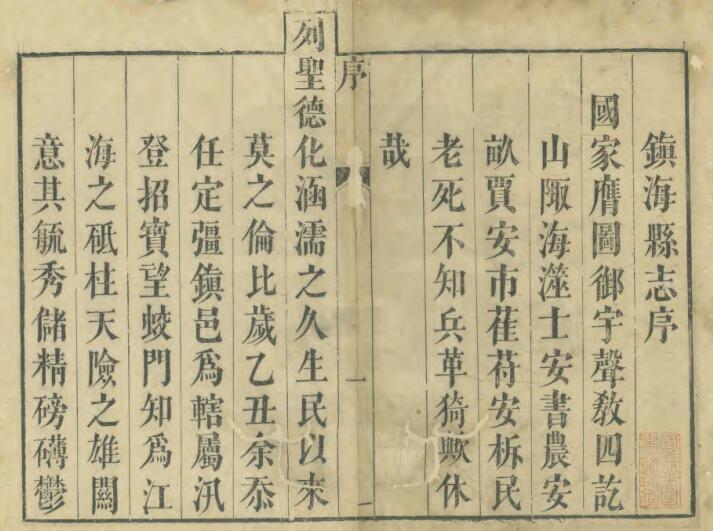 鎮海縣志序
國家膺圖御宇聲敎四訖
山陬海澨士安書農安
畝賈安市萑苻安柝民
老死不知兵革猗歟休
哉
序
一
列聖德化涵濡之久生民以來
莫之倫比歲乙丑余忝
任定彊鎮邑爲轄屬汛
登招寶望蛟門知爲江
海之砥柱天險之雄關
意其毓秀儲精磅礴鬱